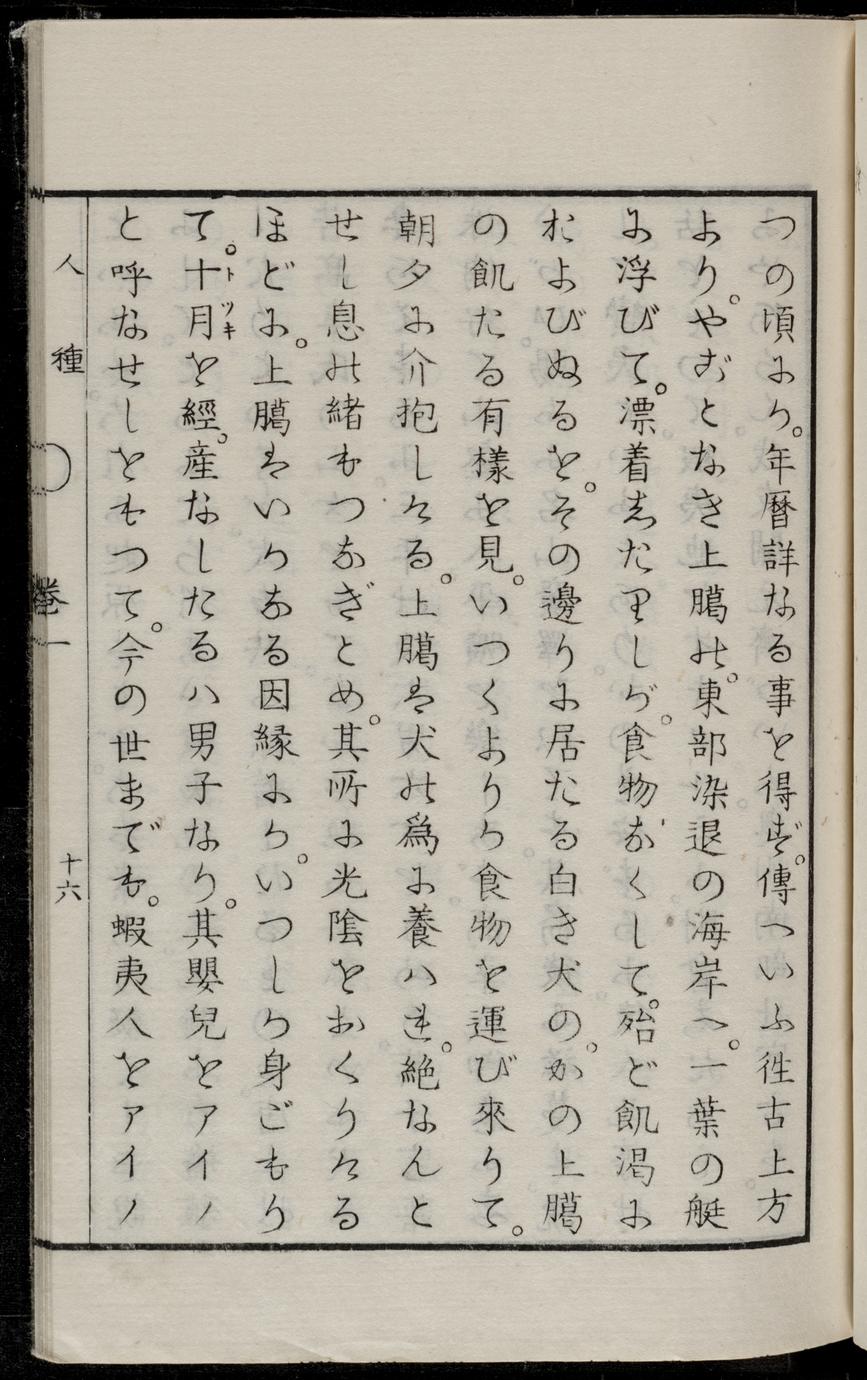 つの頃にか。年暦詳なる事を得ず。傳へいふ徃古上方
より。やごとなき上臈の。東部染退の海岸へ。一葉の艇
に浮びて。漂着志たりしが。食物なくして。殆ど飢渇に
およびぬるを。その邊りに居たる白き犬の。かの上臈
の飢たる有樣を見。いつくよりか食物を運び來りて。
朝夕に介抱しける。上臈は犬の爲に養はれ。絶なんと
せし息の緒もつなぎとめ。其所に光陰をおくりける
ほどに。上臈はいかなる因縁にか。いつしか身ごもり
て。十月を經。産なしたるハ男子なり。其嬰兒をアイノ
トツキ
と呼なせしをもつて。今の世までも。蝦夷人をアイノ
人種
巻一
十六